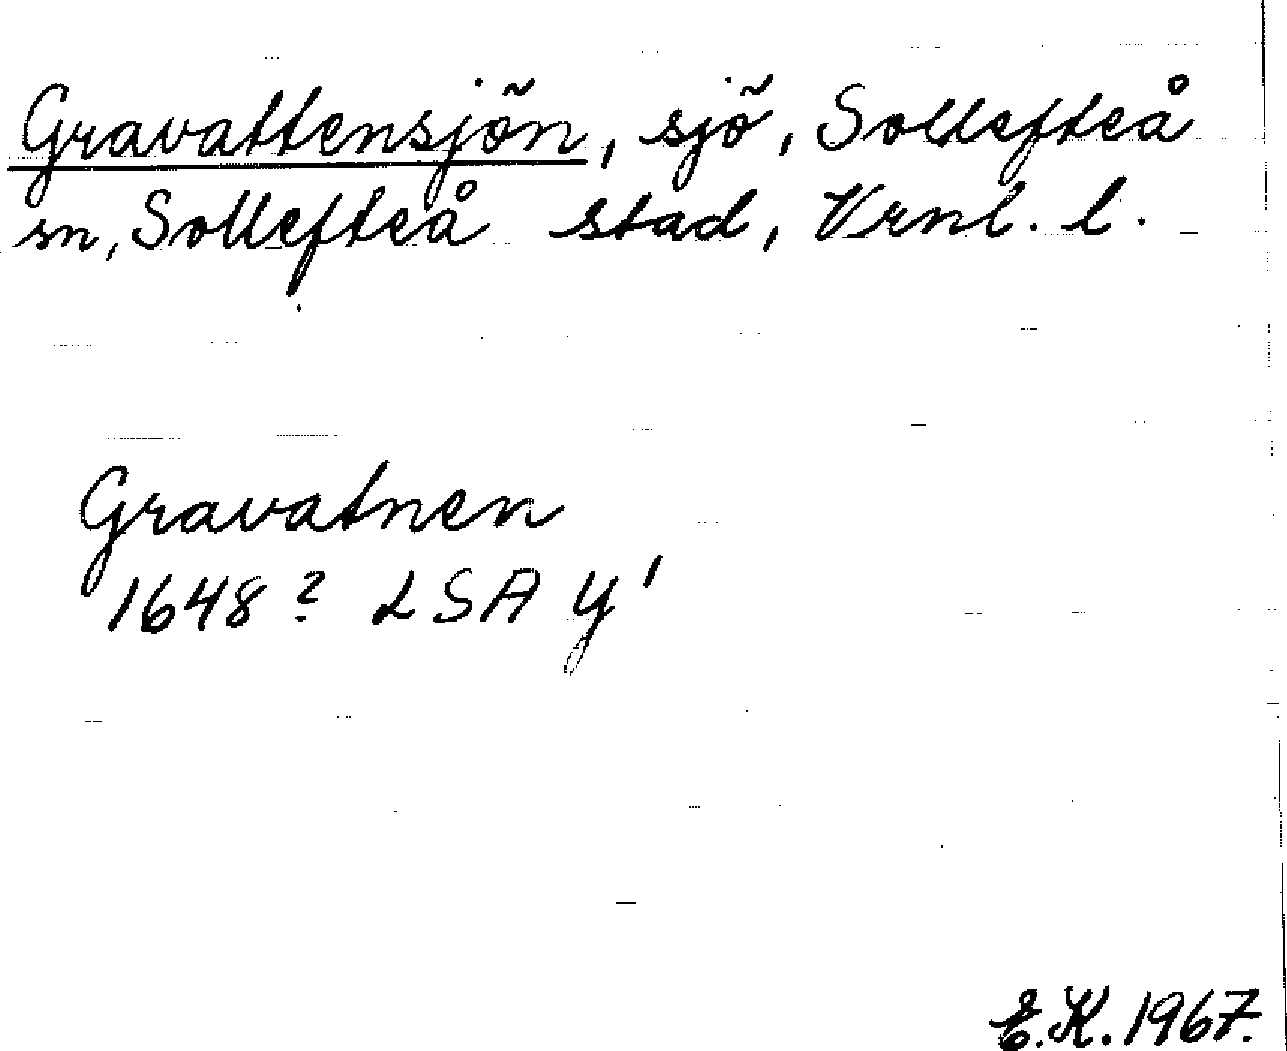 Gravattensjön, sjö, Sollefteå
sn, Sollefteå stad, Vrnl. l.
Gravatnen
1648? LSA Y¹
E.K. 1967.